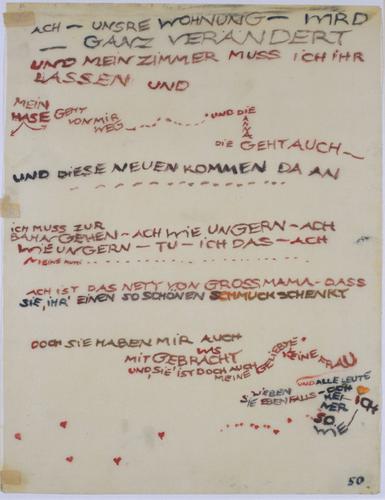 ACH – UNSRE WOHNUNG – WIRD
– GANZ VERÄNDERT
UND MEIN ZIMMER MUSS ICH IHR
LASSEN UND
MEIN
HASE GEHT
VON MIR
WEG
UND DIE
ANNA
DIE GEHT AUCH –
UND DIESE NEUEN KOMMEN DA AN
ICH MUSS ZUR
BAHN GEHEN – ACH WIE UNGERN – ACH
WIE UNGERN – TU – ICH DAS – ACH
ACH IST DAS NETT VON GROSSMAMA – DASS
SIE ‚IHR' EINEN SO SCHÖNEN SCHMUCK SCHENKT
DOCH SIE HABEN MIR AUCH
WAS
MIT GEBRACHT
UND ‚SIE' IST DOCH AUCH
MEINE GELIEBTE
KEINE FRAU
UND ALLE LEUTE
SIE LIEBEN
SIE EBENFALLS – DOCH
KEI-
NER
SO
WIE
ICH
50